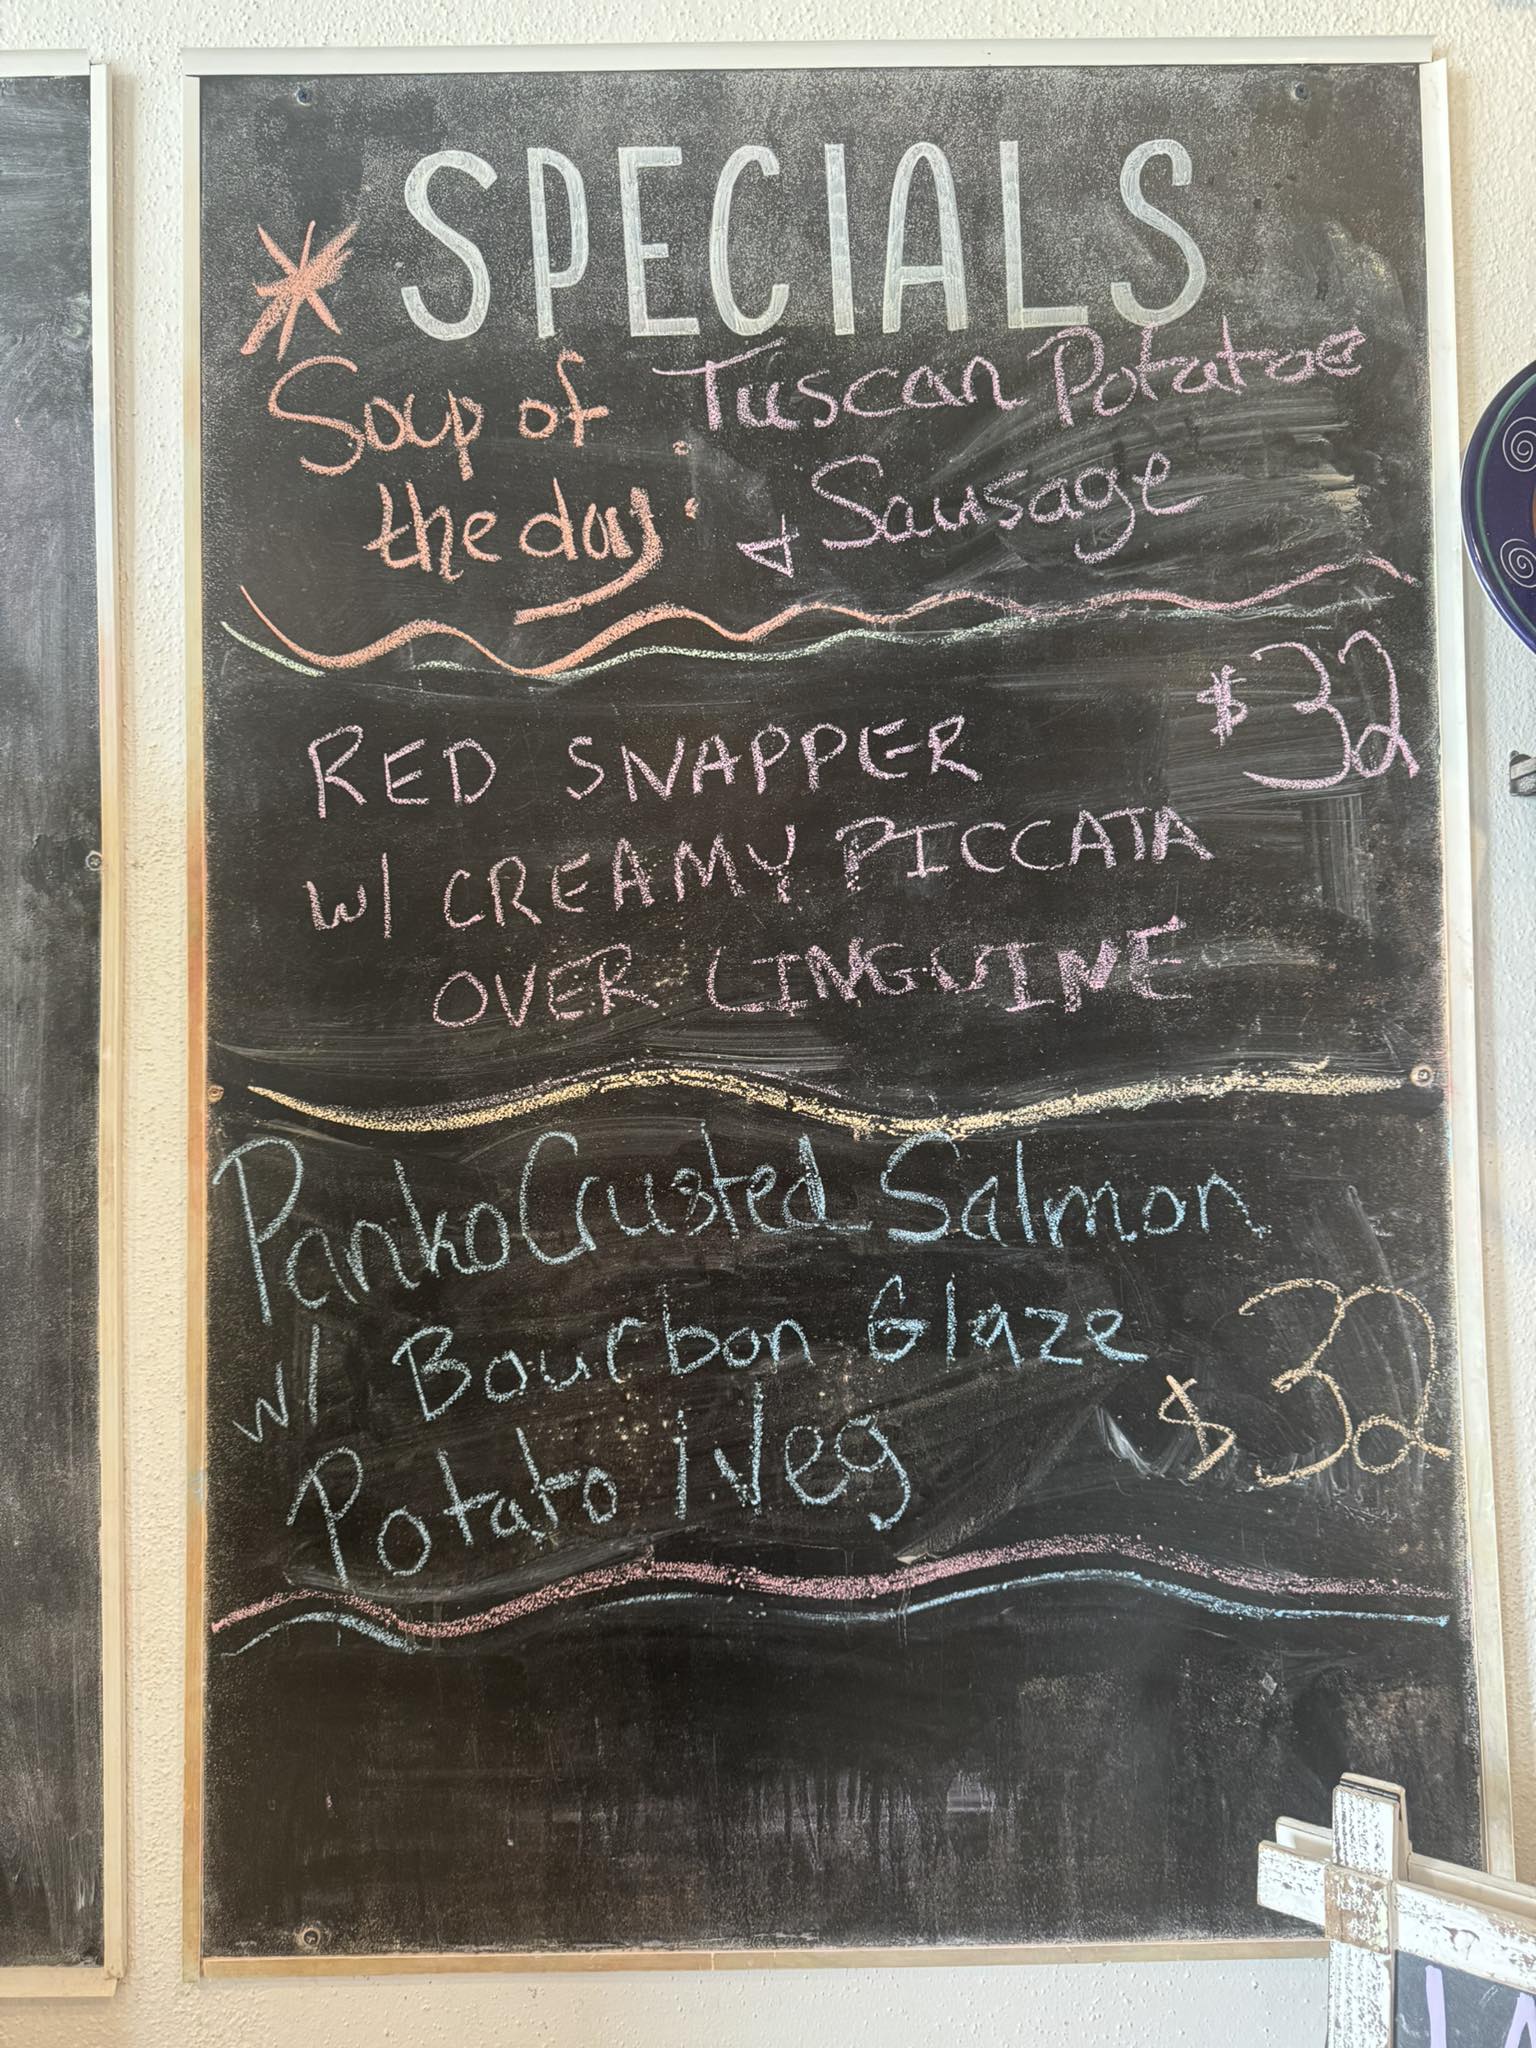 SPECIALS
Soup of the day: Tuscan Potatoe
+ Sausage
RED SNAPPER $32
W/ CREAMY PICCATA
OVER LINGUINE
Panko Crusted Salmon
w/ Bourbon Glaze
Potato / Veg $32